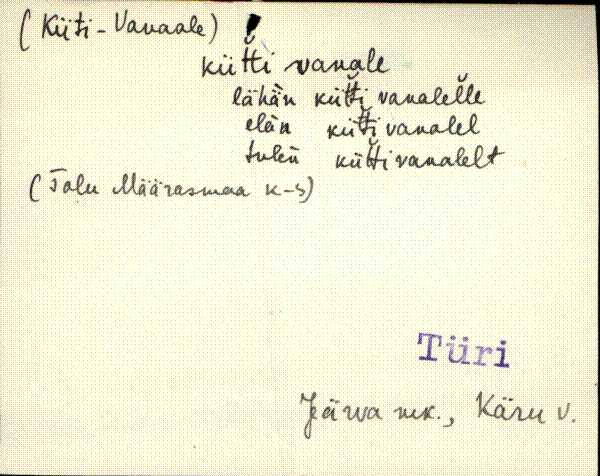 (Küti-Vanaale) !
kütti vanale
lähän kütti vanalelle
elän kütti vanalel
tulen kütti vanalelt
(Talu Määrasmaa k-s)
Türi
Järva mk., Käru v.